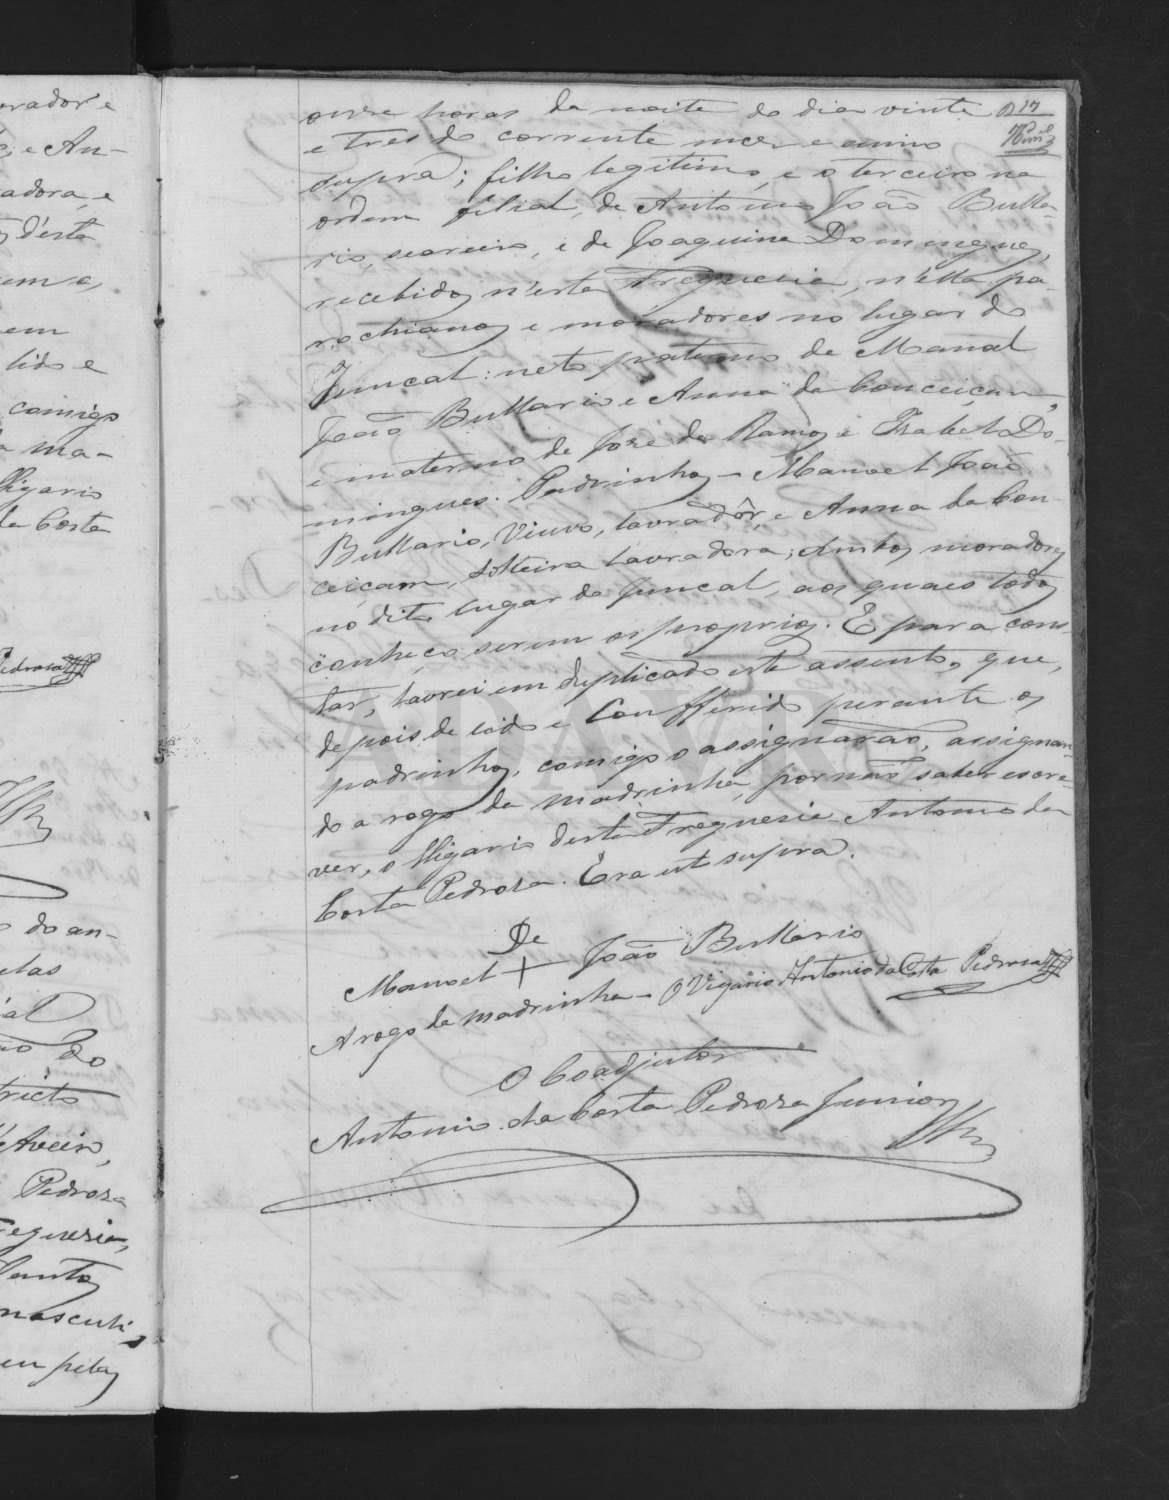 orador e
e An-
adora, e
d'esta
em
lido e
comigo
a ma-
Vigario
da Costa
Pedrosa
do an-
elas
do
tricto
Aveiro,
Pedrosa
Freguesia,
Santos
masculi-
em pelas
17
onze horas da noite do dia vinte
e tres do corrente mez e anno
supra; filho legitimo, e o terceiro na
ordem filial, de Antonio João Bulha-
rio, seareiro, e de Joaquina Domingues,
recebidos n'esta Freguesia, n'ella pa-
rochianos e moradores no lugar do
Juncal: neto paterno de Manoel
João Bulhario e Anna da Conceicam,
e materno de José de Ramos e Isabel Do-
mingues. Padrinhos - Manoel João
Bulhario, Viuvo, lavradôr, e Anna da Con-
ceiçam, solteira lavradora; ambos moradores
no dito lugar do Juncal, aos quaes todos
conheço serem os proprios. E para cons-
tar, lavrei em duplicado este assento, que,
depois de lido e Confferido perante os
padrinhos, comigo o assignarão, assignan-
do a rogo da madrinha, por não saber escre-
ver, o Vigario desta Freguesia Antonio da
Costa Pedrosa. Era ut supra.
De
Manoel + João Bulhario
A rogo da madrinha - O Vigario Antonio da Costa Pedrosa
O Coadjutor
Antonio da Costa Pedrosa Junior
ADAVR